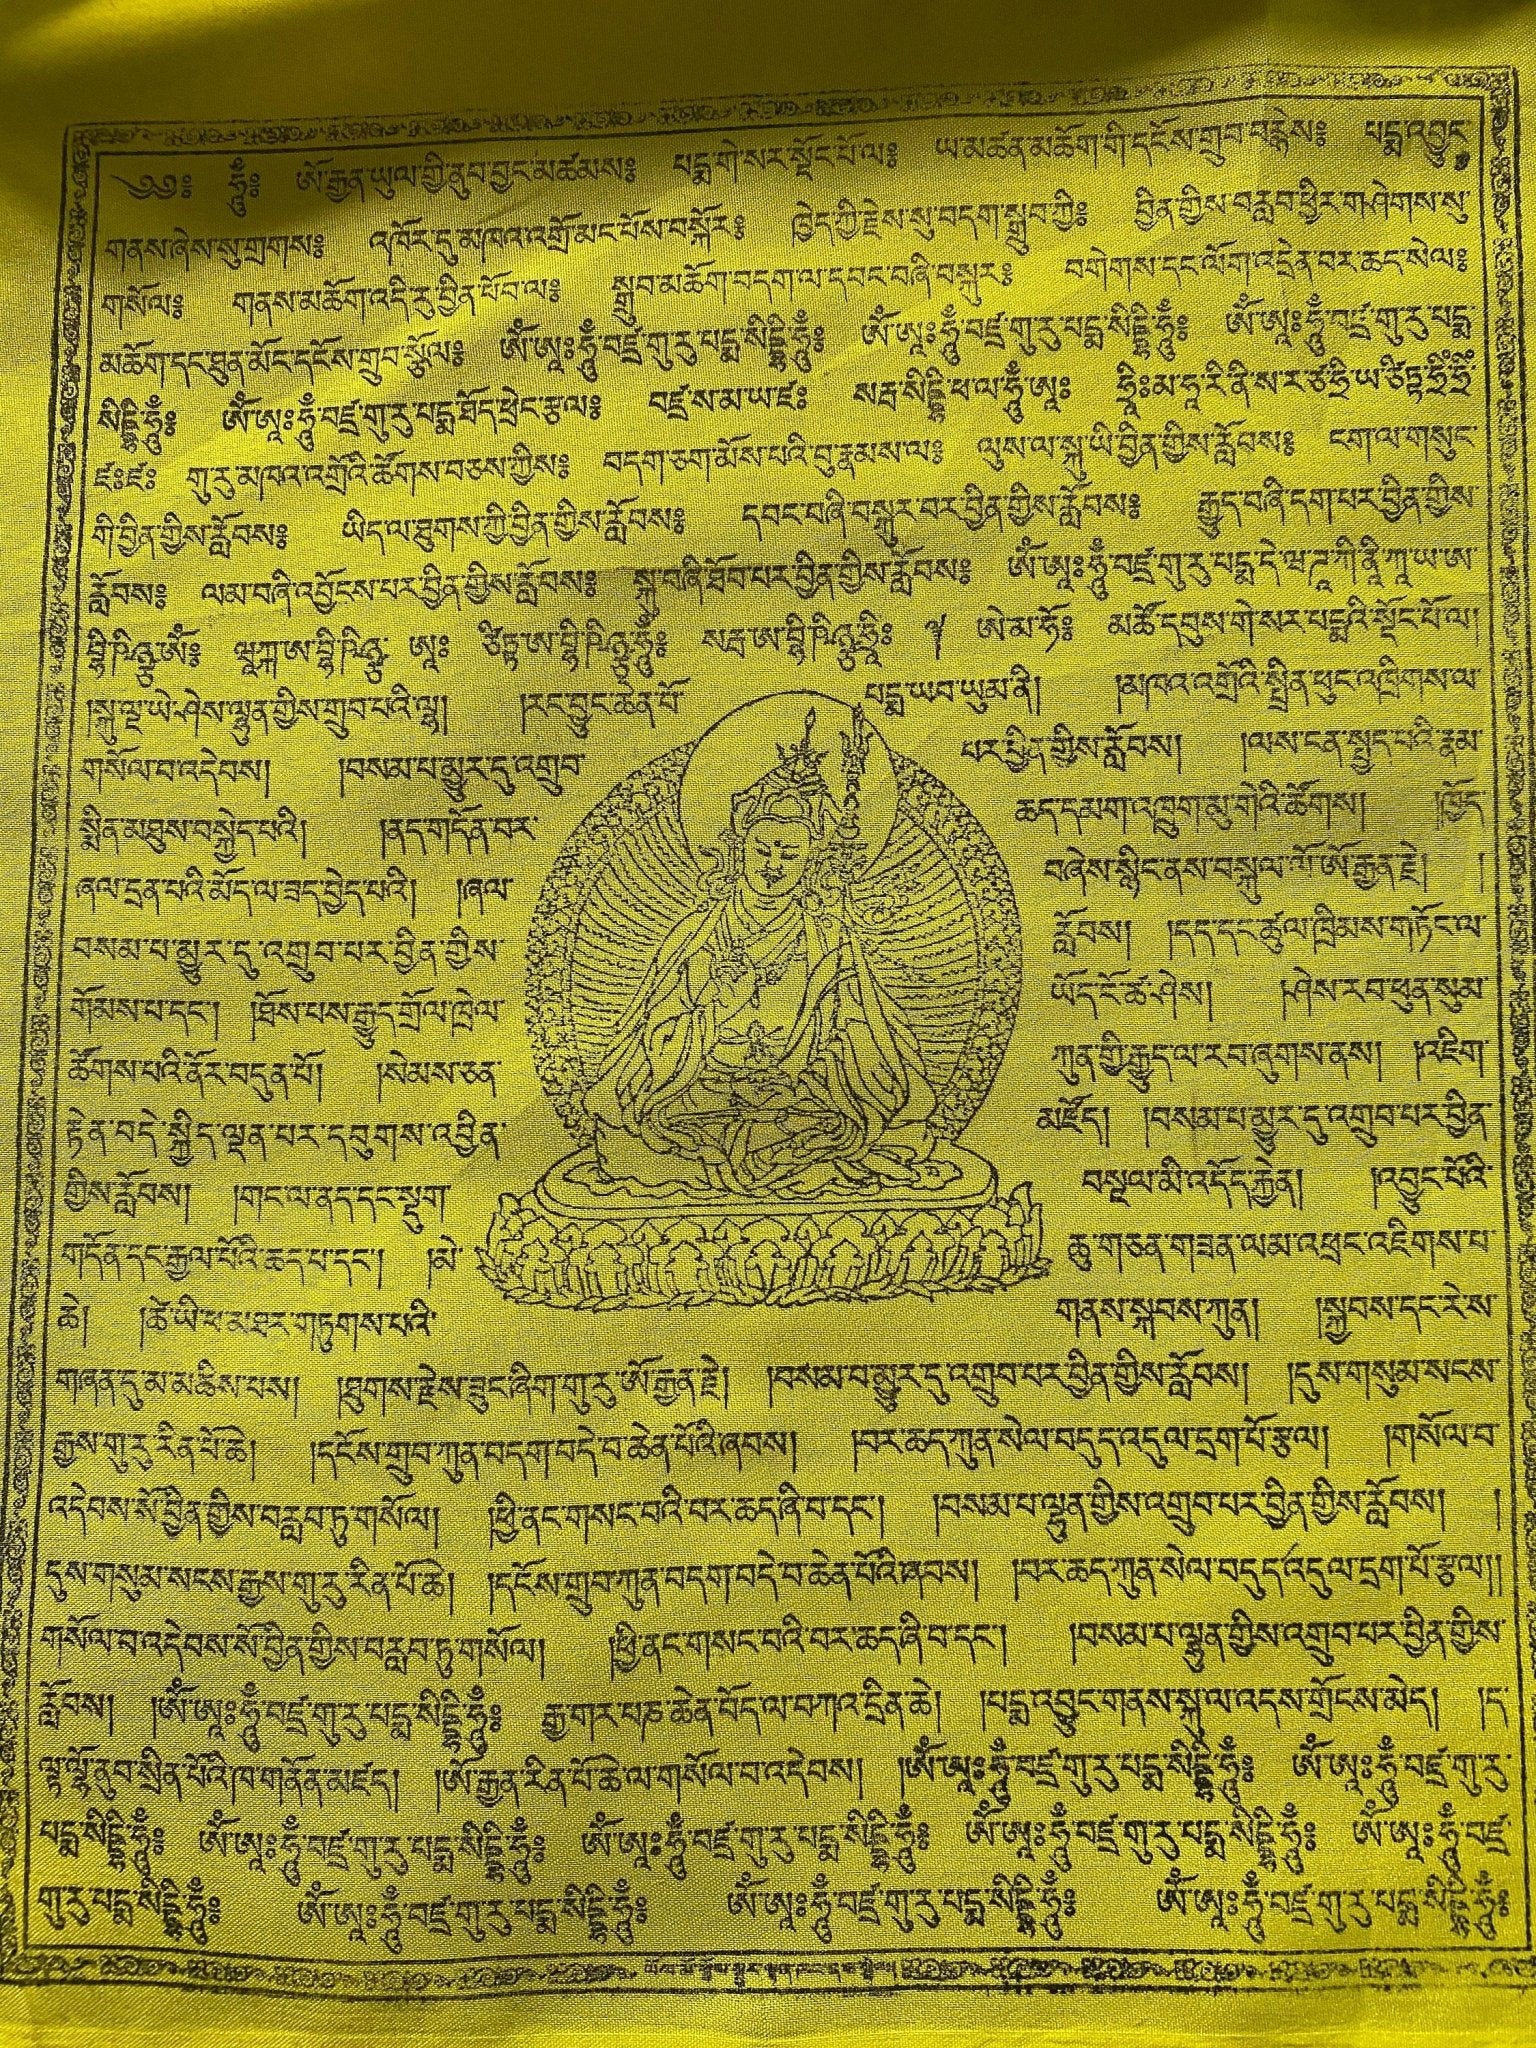 ༄༅༔ ཧཱུྃ༔ ཨོ་རྒྱན་ཡུལ་གྱི་ནུབ་བྱང་མཚམས༔ པདྨ་གེ་སར་སྡོང་པོ་ལ༔ ཡ་མཚན་མཆོག་གི་དངོས་གྲུབ་བརྙེས༔ པདྨ་འབྱུང་
གནས་ཞེས་སུ་གྲགས༔ འཁོར་དུ་མཁའ་འགྲོ་མང་པོས་བསྐོར༔ ཁྱེད་ཀྱི་རྗེས་སུ་བདག་སྒྲུབ་ཀྱི༔ བྱིན་གྱིས་བརླབ་ཕྱིར་གཤེགས་སུ་
གསོལ༔ གནས་མཆོག་འདི་རུ་བྱིན་ཕོབ་ལ༔ སྒྲུབ་མཆོག་བདག་ལ་དབང་བཞི་བསྐུར༔ བགེགས་དང་ལོག་འདྲེན་བར་ཆད་སེལ༔
མཆོག་དང་ཐུན་མོང་དངོས་གྲུབ་སྩོལ༔ ཨོཾ་ཨཱཿཧཱུྃ་བཛྲ་གུ་རུ་པདྨ་སིདྡྷི་ཧཱུྃ༔ ཨོཾ་ཨཱཿཧཱུྃ་བཛྲ་གུ་རུ་པདྨ་སིདྡྷི་ཧཱུྃ༔ ཨོཾ་ཨཱཿཧཱུྃ་བཛྲ་གུ་རུ་པདྨ་
སིདྡྷི་ཧཱུྃ༔ ཨོཾ་ཨཱཿཧཱུྃ་བཛྲ་གུ་རུ་པདྨ་ཐོད་ཕྲེང་རྩལ༔ བཛྲ་ས་མ་ཡ་ཛཿ སརྦ་སིདྡྷི་ཕ་ལ་ཧཱུྃ་ཨཱཿ ཧྲཱིཿམ་ཧཱ་རི་ནི་ས་ར་ཙ་ཧྲི་ཡ་ཙིཏྟ་ཧྲིཾ་ཧྲིཾ་
ཛཿཛཿ གུ་རུ་མཁའ་འགྲོའི་ཚོགས་བཅས་ཀྱིས༔ བདག་ཅག་མོས་པའི་བུ་རྣམས་ལ༔ ལུས་ལ་སྐུ་ཡི་བྱིན་གྱིས་རློབས༔ ངག་ལ་གསུང་
གི་བྱིན་གྱིས་རློབས༔ ཡིད་ལ་ཐུགས་ཀྱི་བྱིན་གྱིས་རློབས༔ དབང་བཞི་བསྐུར་བར་བྱིན་གྱིས་རློབས༔ རྒྱུད་བཞི་དག་པར་བྱིན་གྱིས་
རློབས༔ ལམ་བཞི་འབྱོངས་པར་བྱིན་གྱིས་རློབས༔ སྐུ་བཞི་ཐོབ་པར་བྱིན་གྱིས་རློབས༔ ཨོཾ་ཨཱཿཧཱུྃ་བཛྲ་གུ་རུ་པདྨ་དེ་ཝ་ཌཱ་ཀི་ནཱི་ཀཱ་ཡ་ཨ་
བྷི་ཥིཉྩ་ཨོཾ༔ ཝཱཀྐ་ཨ་བྷི་ཥིཉྩ་ ཨཱཿ ཙིཏྟ་ཨ་བྷི་ཥིཉྩ་ཧཱུྃ༔ སརྦ་ཨ་བྷི་ཥིཉྩ་ཧྲཱིཿ ༈ ཨེ་མ་ཧོ༔ མཚོ་དབུས་གེ་སར་པདྨའི་སྡོང་པོ་ལ།
།སྐུ་ལྔ་ཡེ་ཤེས་ལྷུན་གྱིས་གྲུབ་པའི་ལྷ། །རང་བྱུང་ཆེན་པོ་ པདྨ་ཡབ་ཡུམ་ནི། །མཁའ་འགྲོའི་སྤྲིན་ཕུང་འཁྲིགས་ལ་
གསོལ་བ་འདེབས། །བསམ་པ་མྱུར་དུ་འགྲུབ་ པར་བྱིན་གྱིས་རློབས། །ལས་ངན་སྤྱད་པའི་རྣམ་
སྨིན་མཐུས་བསྐྱེད་པའི། །ནད་གདོན་བར་ ཆད་དམག་འཁྲུག་མུ་གེའི་ཚོགས། །ཁྱོད་
ཞལ་དྲན་པའི་མོད་ལ་ཟད་བྱེད་པའི། །ཞལ་ བཞེས་སྙིང་ནས་བསྐུལ་ལོ་ཨོ་རྒྱན་རྗེ། །
བསམ་པ་མྱུར་དུ་འགྲུབ་པར་བྱིན་གྱིས་ རློབས། །དད་དང་ཚུལ་ཁྲིམས་གཏོང་ལ་
གོམས་པ་དང་། །ཐོས་པས་རྒྱུད་གྲོལ་ཁྲེལ་ ཡོད་ངོ་ཚ་ཤེས། །ཤེས་རབ་ཕུན་སུམ་
ཚོགས་པའི་ནོར་བདུན་པོ། །སེམས་ཅན་ ཀུན་གྱི་རྒྱུད་ལ་རབ་ཞུགས་ནས། །འཇིག་
རྟེན་བདེ་སྐྱིད་ལྡན་པར་དབུགས་འབྱིན་ མཛོད། །བསམ་པ་མྱུར་དུ་འགྲུབ་པར་བྱིན་
གྱིས་རློབས། །གང་ལ་ནད་དང་སྡུག་ བསྔལ་མི་འདོད་རྐྱེན། །འབྱུང་པོའི་
གདོན་དང་རྒྱལ་པོའི་ཆད་པ་དང་། །མེ་ ཆུ་གཅན་གཟན་ལམ་འཕྲང་འཇིགས་པ་
ཆེ། །ཚེ་ཡི་ཕ་མཐར་གཏུགས་པའི་ གནས་སྐབས་ཀུན། །སྐྱབས་དང་རེ་ས་
གཞན་དུ་མ་མཆིས་པས། །ཐུགས་རྗེས་ཟུང་ཞིག་གུ་རུ་ཨོ་རྒྱན་རྗེ། །བསམ་པ་མྱུར་དུ་འགྲུབ་པར་བྱིན་གྱིས་རློབས། །དུས་གསུམ་སངས་
རྒྱས་གུ་རུ་རིན་པོ་ཆེ། །དངོས་གྲུབ་ཀུན་བདག་བདེ་བ་ཆེན་པོའི་ཞབས། །བར་ཆད་ཀུན་སེལ་བདུད་འདུལ་དྲག་པོ་རྩལ། །གསོལ་བ་
འདེབས་སོ་བྱིན་གྱིས་བརླབ་ཏུ་གསོལ། །ཕྱི་ནང་གསང་བའི་བར་ཆད་ཞི་བ་དང་། །བསམ་པ་ལྷུན་གྱིས་འགྲུབ་པར་བྱིན་གྱིས་རློབས། །
དུས་གསུམ་སངས་རྒྱས་གུ་རུ་རིན་པོ་ཆེ། །དངོས་གྲུབ་ཀུན་བདག་བདེ་བ་ཆེན་པོའི་ཞབས། །བར་ཆད་ཀུན་སེལ་བདུད་འདུལ་དྲག་པོ་རྩལ།།
གསོལ་བ་འདེབས་སོ་བྱིན་གྱིས་བརླབ་ཏུ་གསོལ། །ཕྱི་ནང་གསང་བའི་བར་ཆད་ཞི་བ་དང་། །བསམ་པ་ལྷུན་གྱིས་འགྲུབ་པར་བྱིན་གྱིས་
རློབས། །ཨོཾ་ཨཱཿཧཱུྃ་བཛྲ་གུ་རུ་པདྨ་སིདྡྷི་ཧཱུྃ༔ རྒྱ་གར་པཎ་ཆེན་བོད་ལ་བཀའ་དྲིན་ཆེ། །པདྨ་འབྱུང་གནས་སྐུ་ལ་འདས་གྲོངས་མེད། །ད་
ལྟ་ལྷོ་ནུབ་སྲིན་པོའི་ཁ་གནོན་མཛད། །ཨོ་རྒྱན་རིན་པོ་ཆེ་ལ་གསོལ་བ་འདེབས། །ཨོཾ་ཨཱཿཧཱུྃ་བཛྲ་གུ་རུ་པདྨ་སིདྡྷི་ཧཱུྃ༔ ཨོཾ་ཨཱཿཧཱུྃ་བཛྲ་གུ་རུ་
པདྨ་སིདྡྷི་ཧཱུྃ༔ ཨོཾ་ཨཱཿཧཱུྃ་བཛྲ་གུ་རུ་པདྨ་སིདྡྷི་ཧཱུྃ༔ ཨོཾ་ཨཱཿཧཱུྃ་བཛྲ་གུ་རུ་པདྨ་སིདྡྷི་ཧཱུྃ༔ ཨོཾ་ཨཱཿཧཱུྃ་བཛྲ་གུ་རུ་པདྨ་སིདྡྷི་ཧཱུྃ༔ ཨོཾ་ཨཱཿཧཱུྃ་བཛྲ་
གུ་རུ་པདྨ་སིདྡྷི་ཧཱུྃ༔ ཨོཾ་ཨཱཿཧཱུྃ་བཛྲ་གུ་རུ་པདྨ་སིདྡྷི་ཧཱུྃ༔ ཨོཾ་ཨཱཿཧཱུྃ་བཛྲ་གུ་རུ་པདྨ་སིདྡྷི་ཧཱུྃ༔ ཨོཾ་ཨཱཿཧཱུྃ་བཛྲ་གུ་རུ་པདྨ་སིདྡྷི་ཧཱུྃ༔